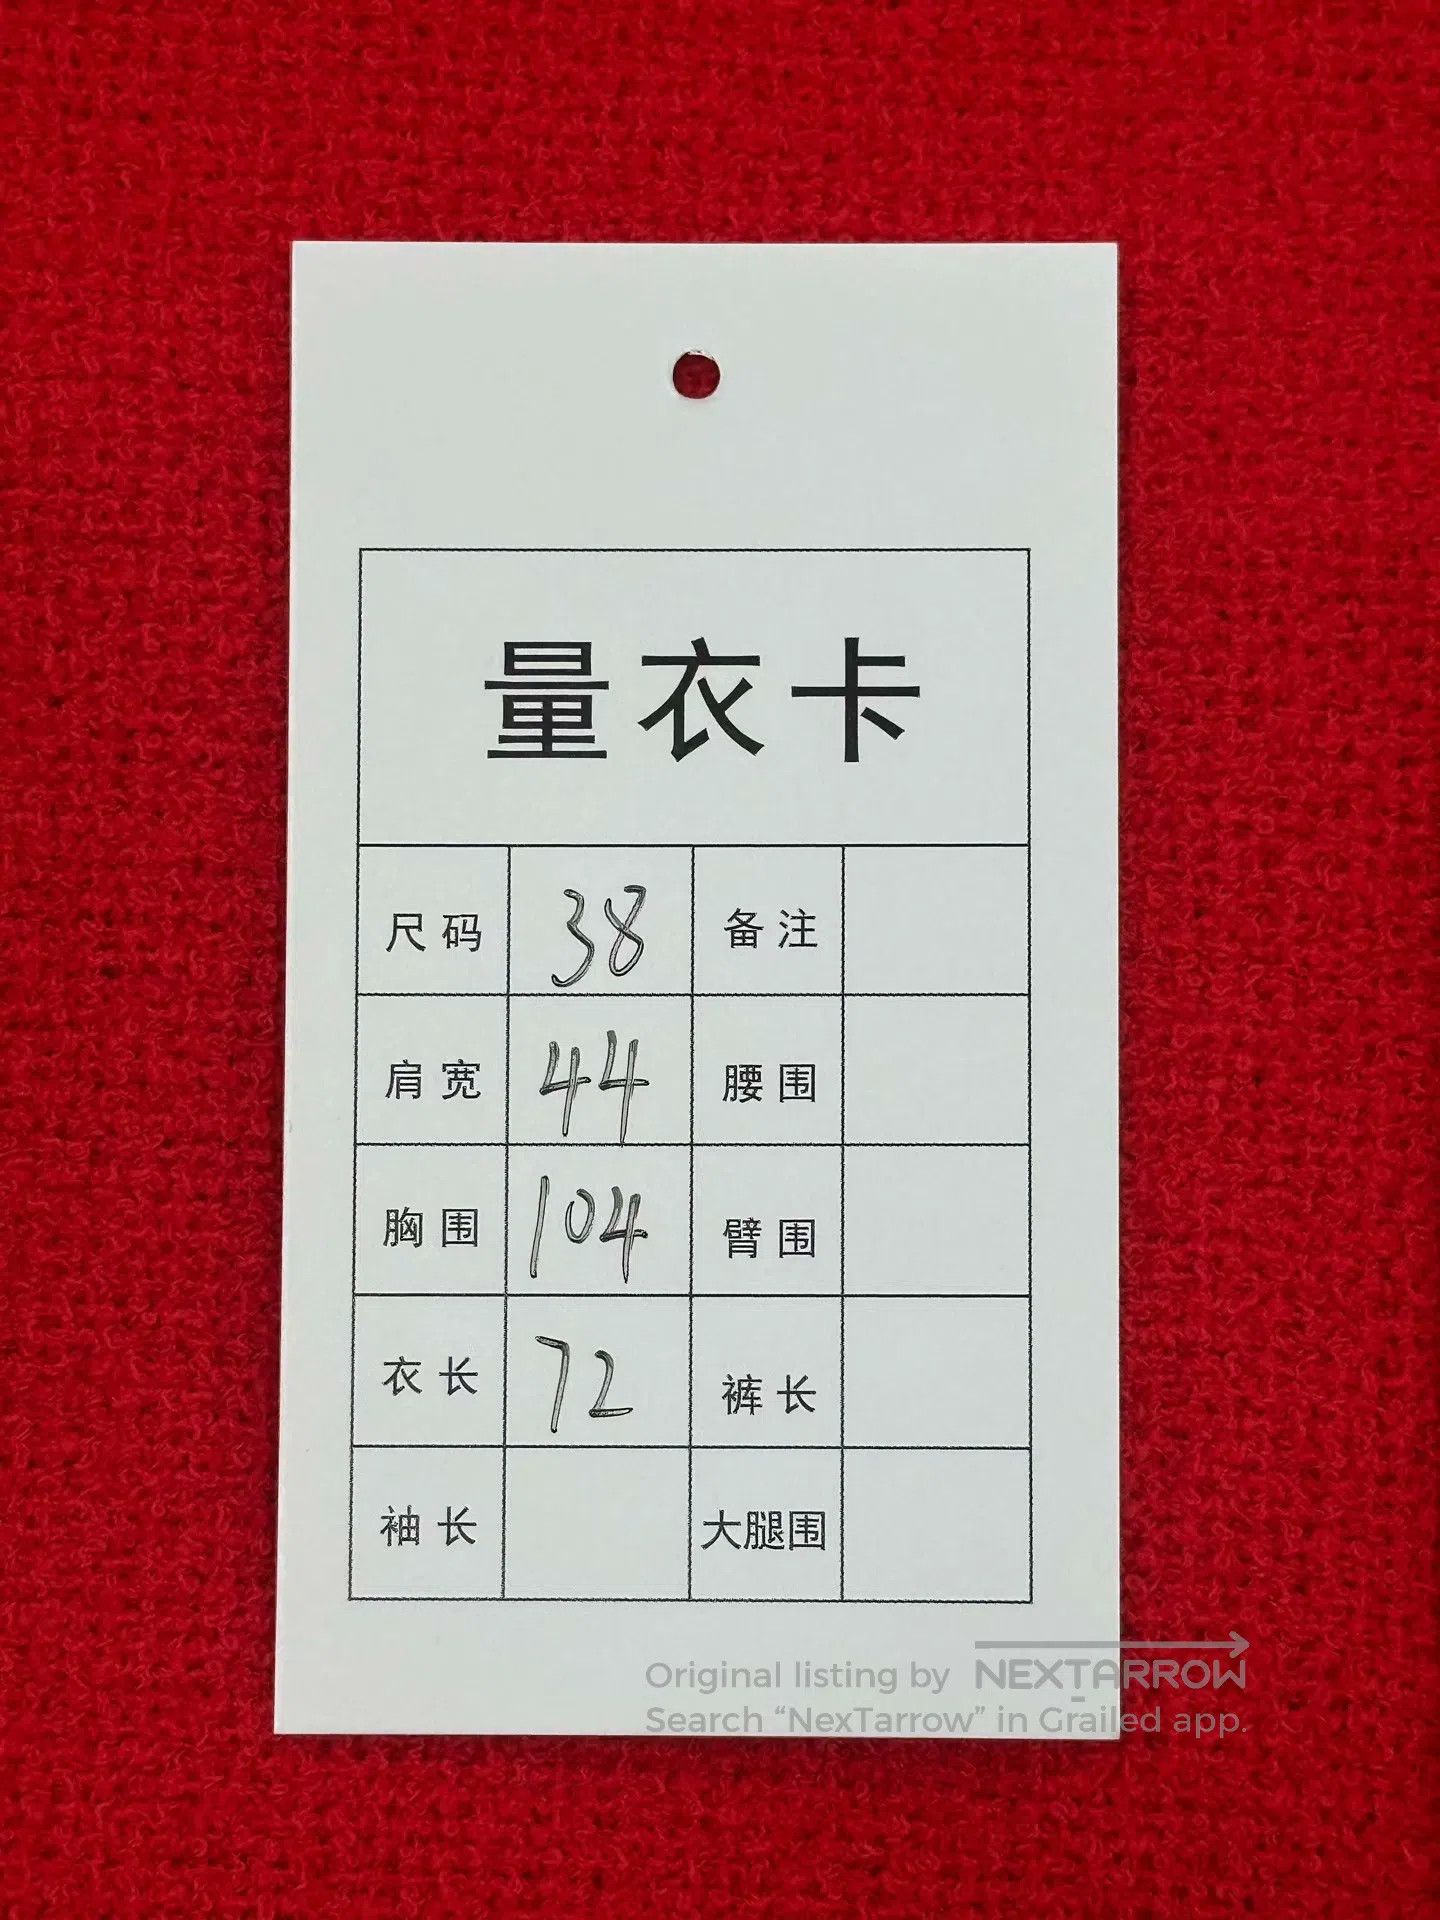 量衣卡
尺码 38 备注
肩宽 44 腰围
胸围 104 臂围
衣长 72 裤长
袖长 大腿围
Original listing by NEXTARROW
Search “NexTarrow” in Grailed app.